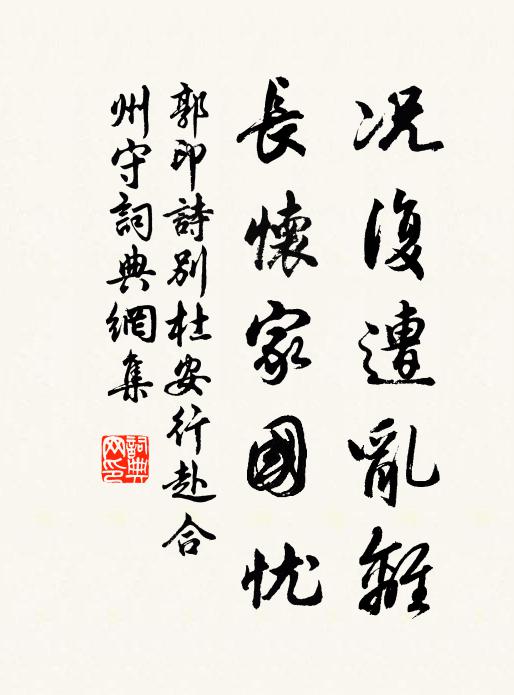 况復遭亂離
長懷家國忧
郭印詩别杜安行赴合
州守詞典網集
詞典網印